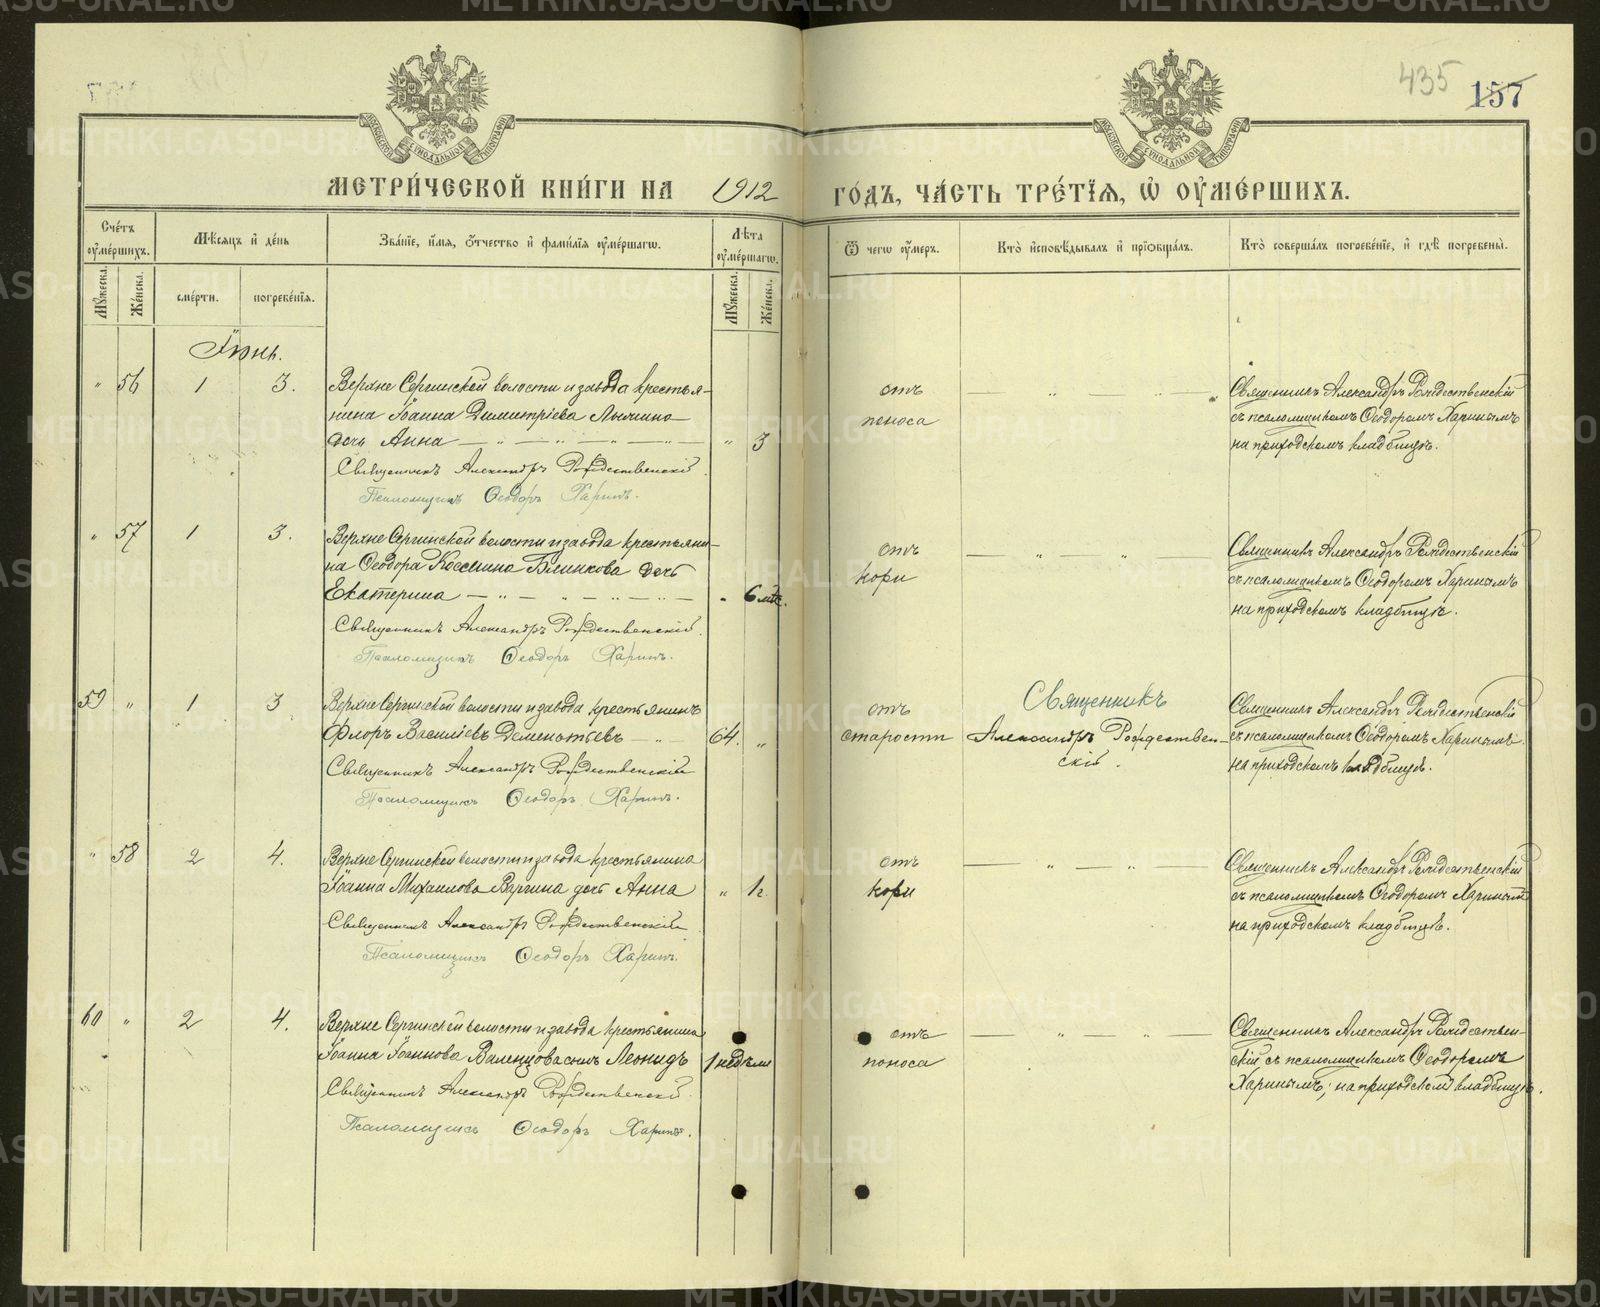 435 157
МОСКОВСКОЙ СУНОДАЛЬНОЙ ТИПОГРАФІИ
МОСКОВСКОЙ СУНОДАЛЬНОЙ ТИПОГРАФІИ
МЕТРИ́ЧЕСКОЙ КНИ́ГИ НА 1912 ГО́ДЪ, ЧА́СТЬ ТРЕ́ТІѦ, Ѡ҆ ОУ҆МЕ́РШИХЪ.
Сче́тъ оу҆ме́ршихъ.
Мѣ́сяцъ и҆ де́нь
Зва́нїе, и҆́мѧ, ѻ҆́тчество и҆ фами́лїѧ оу҆ме́ршагѡ.
Лѣ́та оу҆ме́ршагѡ.
Ѿ чегѡ̀ оу҆́меръ.
Кто̀ и҆сповѣ́дывалъ и҆ прїѡбща́лъ.
Кто̀ соверша́лъ погребе́нїе, и҆ гдѣ̀ погребены̀.
Мꙋ́жеска. Же́нска. сме́рти. погребе́нїѧ. Мꙋ́жеска. Же́нска.
Іюнь.
" 56 1 3. Верхне Сергинской волости и завода крестья-
нина Іоанна Димитріева
дочь Анна — " — " — " — " 3
Священникъ Александръ Рождественскій.
Псаломщикъ Ѳеодоръ Харинъ.
отъ
поноса
— " — " —
Священникъ Александръ Рождественскій
съ псаломщикомъ Ѳеодоромъ Харинымъ
на приходскомъ кладбищѣ.
" 57 1 3. Верхне Сергинской волости и завода крестьяни-
на Ѳеодора Космина Блинкова дочь
Екатерина — " — " — " — " 6 мѣс.
Священникъ Александръ Рождественскій.
Псаломщикъ Ѳеодоръ Харинъ.
отъ
кори
— " — " —
Священникъ Александръ Рождественскій
съ псаломщикомъ Ѳеодоромъ Харинымъ
на приходскомъ кладбищѣ.
59 " 1 3 Верхне Сергинской волости и завода крестьянинъ
Флоръ Василіевъ Дементьевъ — " 64. "
Священникъ Александръ Рождественскій
Псаломщикъ Ѳеодоръ Харинъ.
отъ
старости
Священникъ
Александръ Рождествен-
скій.
Священникъ Александръ Рождественскій
съ псаломщикомъ Ѳеодоромъ Харинымъ
на приходскомъ кладбищѣ.
" 58 2 4. Верхне Сергинской волости и завода крестьянина
Іоанна Михаилова Вяргина дочь Анна " 1 г.
Священникъ Александръ Рождественскій
Псаломщикъ Ѳеодоръ Харинъ.
отъ
кори
— " — " —
Священникъ Александръ Рождественскій
съ псаломщикомъ Ѳеодоромъ Харинымъ
на приходскомъ кладбищѣ.
60 " 2 4. Верхне Сергинской волости и завода крестьянина
Іоанна Іоаннова Валенцова сынъ Леонидъ 1 недѣли
Священникъ Александръ Рождественскій.
Псаломщикъ Ѳеодоръ Харинъ.
отъ
поноса
— " — " —
Священникъ Александръ Рождествен-
скій съ псаломщикомъ Ѳеодоромъ
Харинымъ, на приходском кладбищѣ.
METRIKI.GASO-URAL.RU